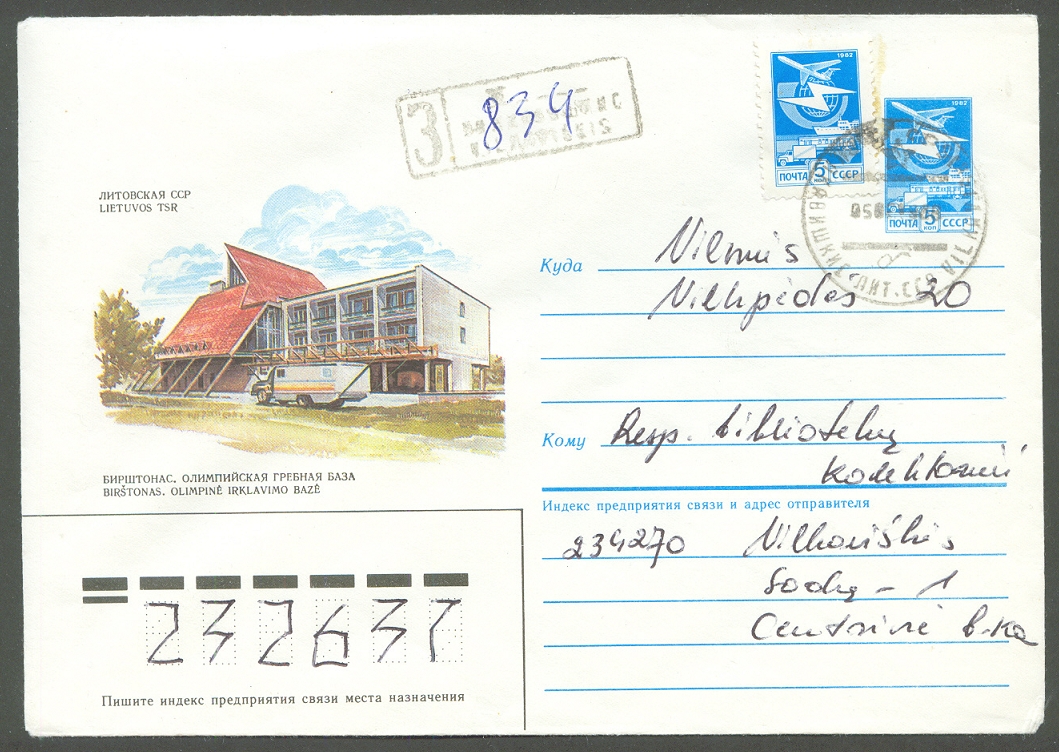 З 834
1982
5 коп
ПОЧТА СССР
1982
5 коп
ПОЧТА СССР
ЛИТ. ССР
ЛИТОВСКАЯ ССР
LIETUVOS TSR
БИРШТОНАС. ОЛИМПИЙСКАЯ ГРЕБНАЯ БАЗА
BIRŠTONAS. OLIMPINĖ IRKLAVIMO BAZĖ
Куда Vilnius
20
Кому Resp. bibliotekų
Индекс предприятия связи и адрес отправителя
234270 Vilkaviškis
Sodų – 1
Centrinė b-ka
232637
Пишите индекс предприятия связи места назначения